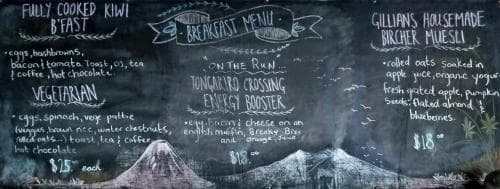 FULLY COOKED KIWI
B'FAST
• eggs, hashbrowns,
bacon, tomato. Toast, OJ, tea
& coffee, hot chocolate
VEGETARIAN
• eggs, spinach, vege pattie
(veggies, brown rice, water chestnuts,
rolled oats...) toast, tea & coffee
hot chocolate
$25. each
BREAKFAST MENU
"ON THE RUN...
TONGARIRO CROSSING
ENERGY BOOSTER
• egg, bacon & cheese on an
english muffin, Breaky Bixx
and orange juice
$18.00
GILLIANS HOUSEMADE
BIRCHER MUESLI
• rolled oats soaked in
apple juice, organic yogurt
fresh grated apple, pumpkin
seeds, flaked almond &
blueberries.
$18.00